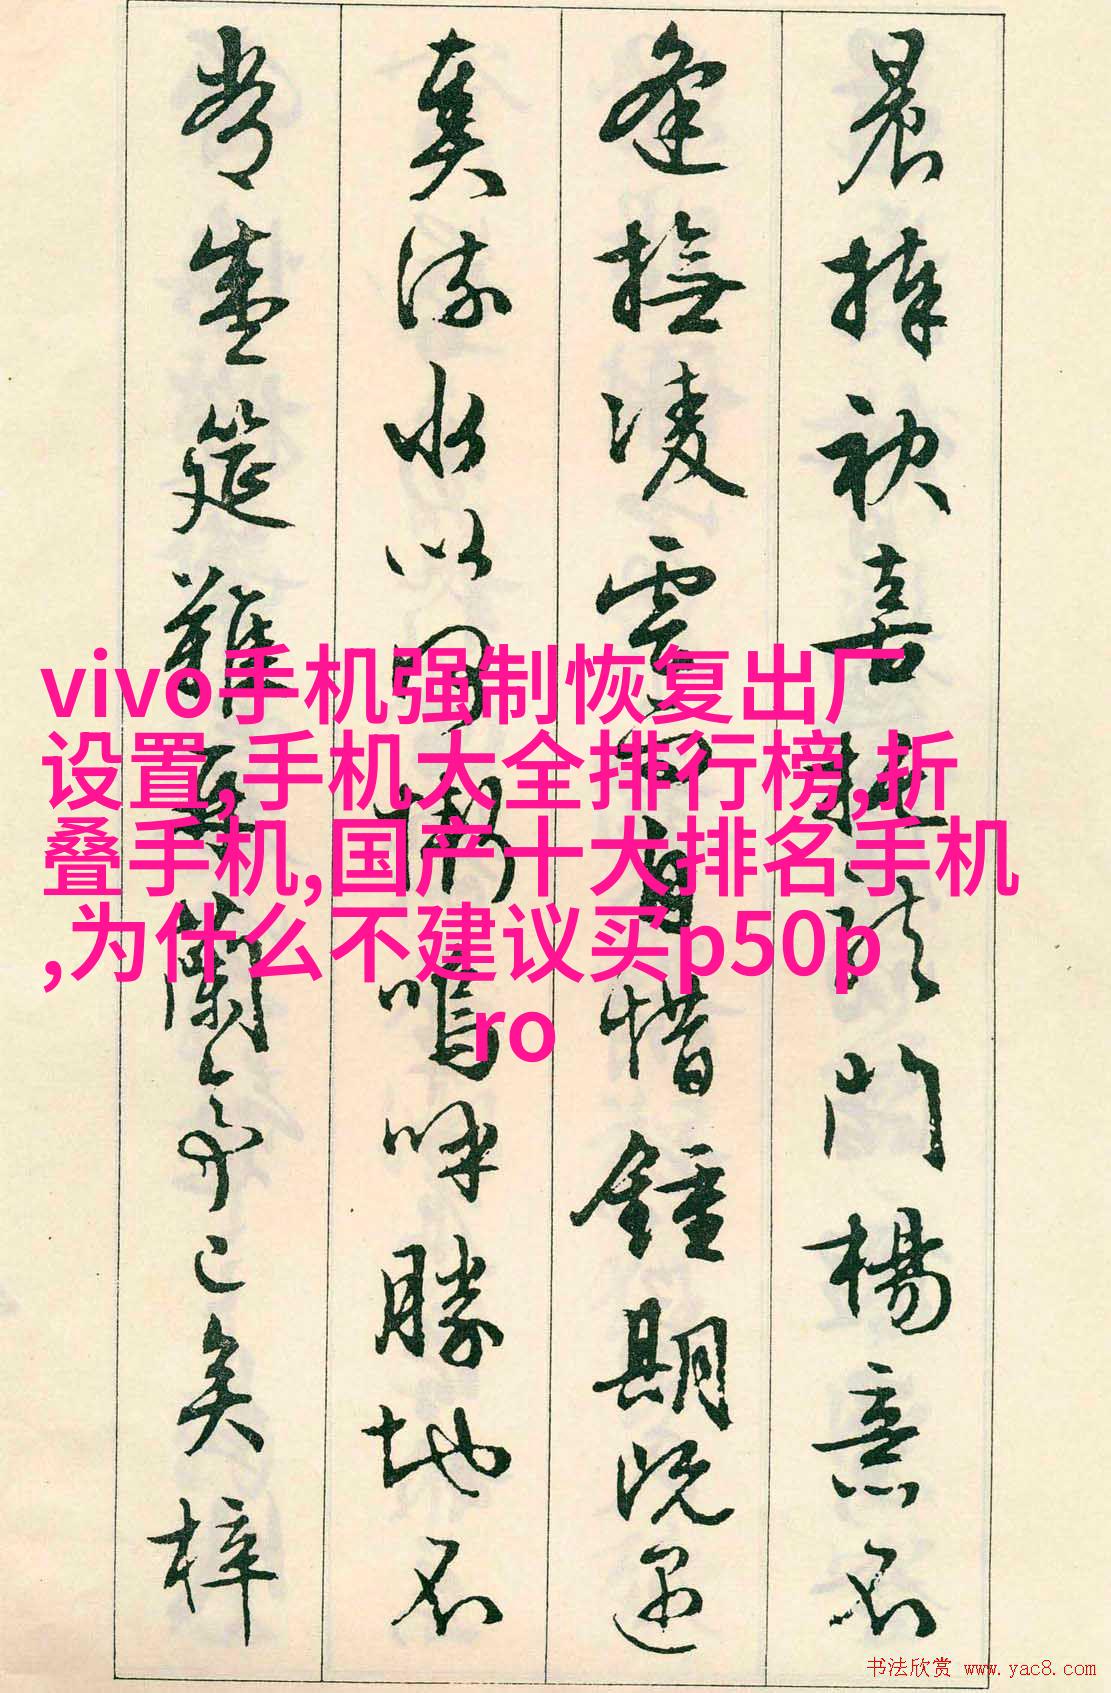 vivo手机强制恢复出厂
设置,手机大全排行榜,折
叠手机,国产十大排名手机
,为什么不建议买p50p
ro
晨捧袂喜托龍門楊意不
逢撫凌雲而自惜鍾期既遇
奏流水以何慚嗚呼勝地不
常盛筵難再蘭亭已矣梓
书法欣赏 www.yac8.com